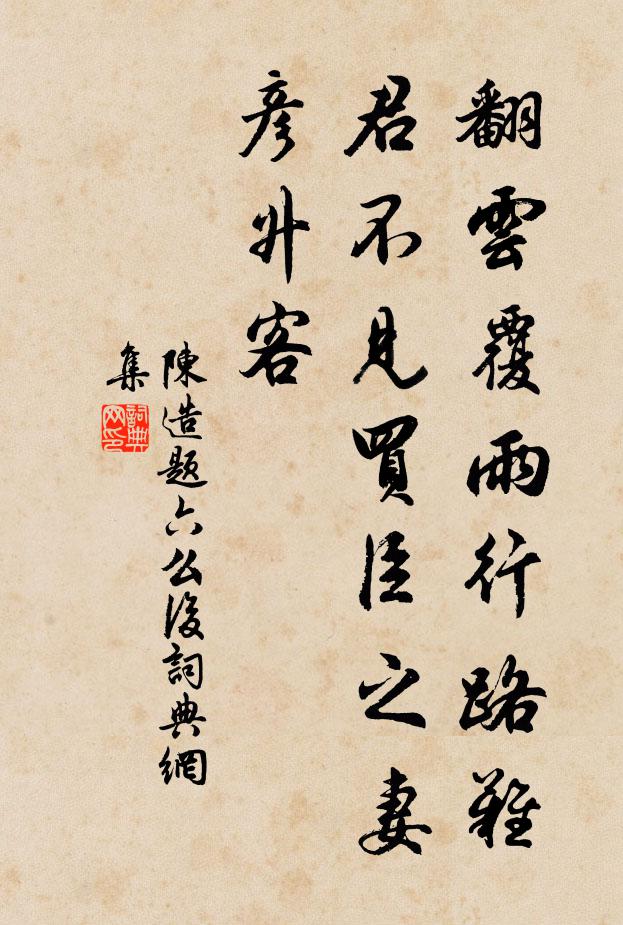 翻雲覆雨行路難
君不見買臣之妻
彦升客
陳造題六么後詞典網
集
詞典网印